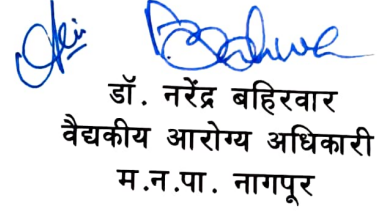 डॉ. नरेंद्र बहिरवार
वैद्यकीय आरोग्य अधिकारी
म.न.पा. नागपूर